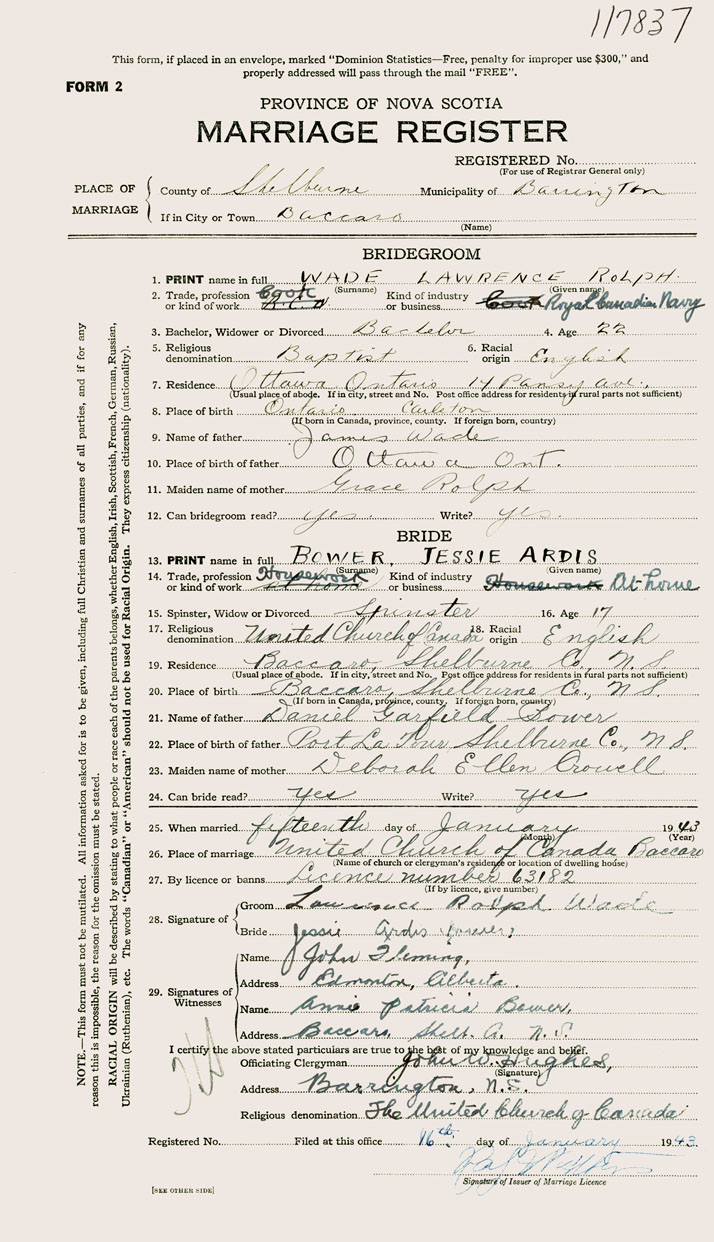 117837
This form, if placed in an envelope, marked "Dominion Statistics—Free, penalty for improper use $300," and
properly addressed will pass through the mail "FREE".
FORM 2
PROVINCE OF NOVA SCOTIA
MARRIAGE REGISTER
REGISTERED No.
(For use of Registrar General only)
PLACE OF MARRIAGE
County of Shelburne Municipality of Barrington
If in City or Town Baccaro
(Name)
BRIDEGROOM
1. PRINT name in full WADE LAWRENCE ROLPH.
(Surname) (Given name)
2. Trade, profession or kind of work Cook R.C.N. Kind of industry or business Cook Royal Canadian Navy
3. Bachelor, Widower or Divorced Bachelor 4. Age 22
5. Religious denomination Baptist 6. Racial origin English
7. Residence Ottawa Ontario 14 Pansy ave.,
(Usual place of abode. If in city, street and No. Post office address for residents in rural parts not sufficient)
8. Place of birth Ontario Carleton
(If born in Canada, province, county. If foreign born, country)
9. Name of father James Wade
10. Place of birth of father Ottawa Ont.
11. Maiden name of mother Grace Rolph
12. Can bridegroom read? yes. Write? yes.
BRIDE
13. PRINT name in full BOWER, JESSIE ARDIS
(Surname) (Given name)
14. Trade, profession or kind of work Housework at home Kind of industry or business Housework At home
15. Spinster, Widow or Divorced Spinster 16. Age 17
17. Religious denomination United Church of Canada 18. Racial origin English
19. Residence Baccaro, Shelburne Co., N.S.
(Usual place of abode. If in city, street and No. Post office address for residents in rural parts not sufficient)
20. Place of birth Baccaro, Shelburne Co., N S
(If born in Canada, province, county. If foreign born, country)
21. Name of father Daniel Garfield Bower
22. Place of birth of father Port La Tour Shelburne Co., N S.
23. Maiden name of mother Deborah Ellen Crowell
24. Can bride read? yes Write? yes
25. When married fifteenth day of January 1943
(Month) (Year)
26. Place of marriage United Church of Canada Baccaro
(Name of church or clergyman's residence or location of dwelling house)
27. By licence or banns Licence number 63182
(If by licence, give number)
28. Signature of
Groom Lawrence Rolph Wade
Bride Jessie Ardis Bower,
29. Signatures of Witnesses
Name John Fleming,
Address Edmonton, Alberta.
Name Annie Patricia Bower,
Address Baccaro, Shelb. Co. N.S.
I certify the above stated particulars are true to the best of my knowledge and belief.
Officiating Clergyman John W. Hughes,
(Signature)
Address Barrington, N.S.
Religious denomination The United Church of Canada
Registered No. Filed at this office 16th. day of January 1943.
Signature of Issuer of Marriage Licence
[SEE OTHER SIDE]
NOTE.—This form must not be mutilated. All information asked for is to be given, including full Christian and surnames of all parties, and if for any
reason this is impossible, the reason for the omission must be stated.
RACIAL ORIGIN will be described by stating to what people or race each of the parents belongs, whether English, Irish, Scottish, French, German, Russian,
Ukrainian (Ruthenian), etc. The words "Canadian" or "American" should not be used for Racial Origin. They express citizenship (nationality).